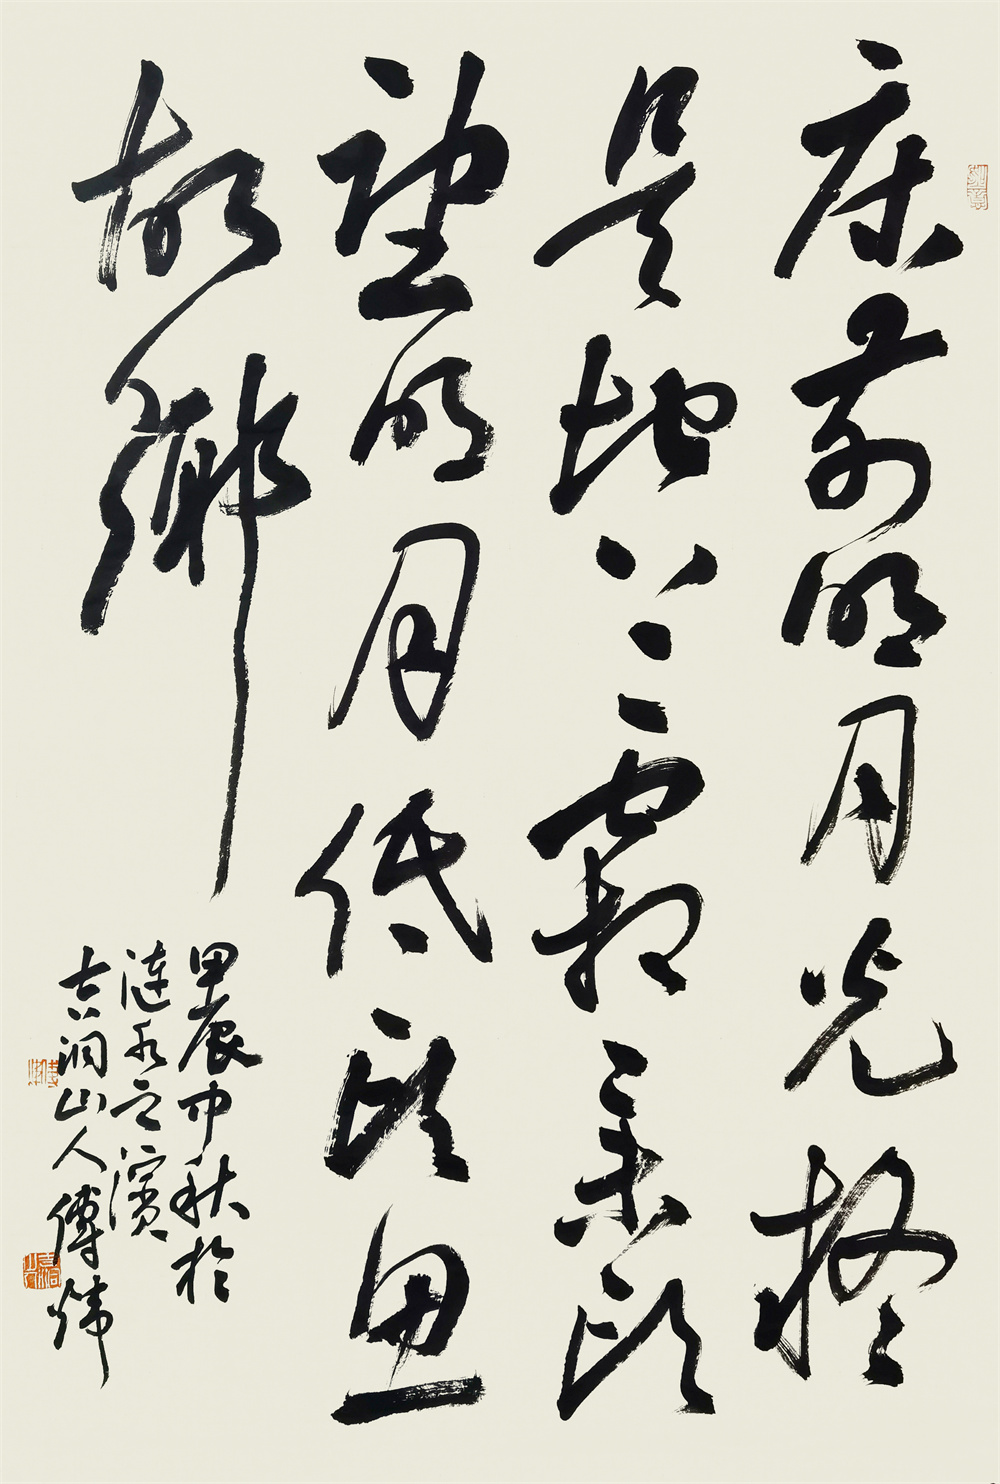 床前明月光疑
是地上霜舉頭
望明月低頭思
故鄉
甲辰中秋於
漣水之濱
古洞山人傅煒